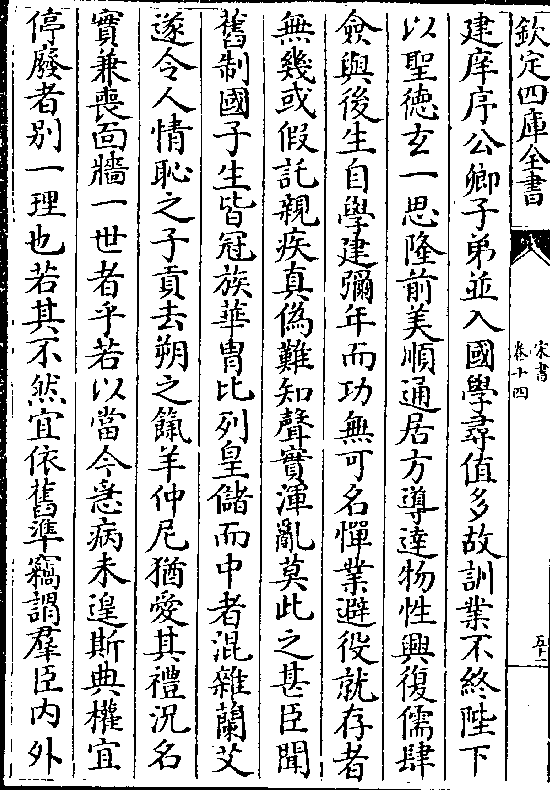 欽定四庫全書
宋書
卷十四
五十二
建庠序公卿子弟並入國學尋值多故訓業不終陛下
以聖德玄一思隆前美順通居方導達物性興復儒肆
僉與後生自學建彌年而功無可名憚業避役就存者
無幾或假託親疾真偽難知聲實渾亂莫此之甚臣聞
舊制國子生皆冠族華胄比列皇儲而中者混雜蘭艾
遂令人情恥之子貢去朔之餼羊仲尼猶愛其禮況名
實兼喪面牆一世者乎若以當今急病未遑斯典權宜
停廢者别一理也若其不然宜依舊準竊謂羣臣内外